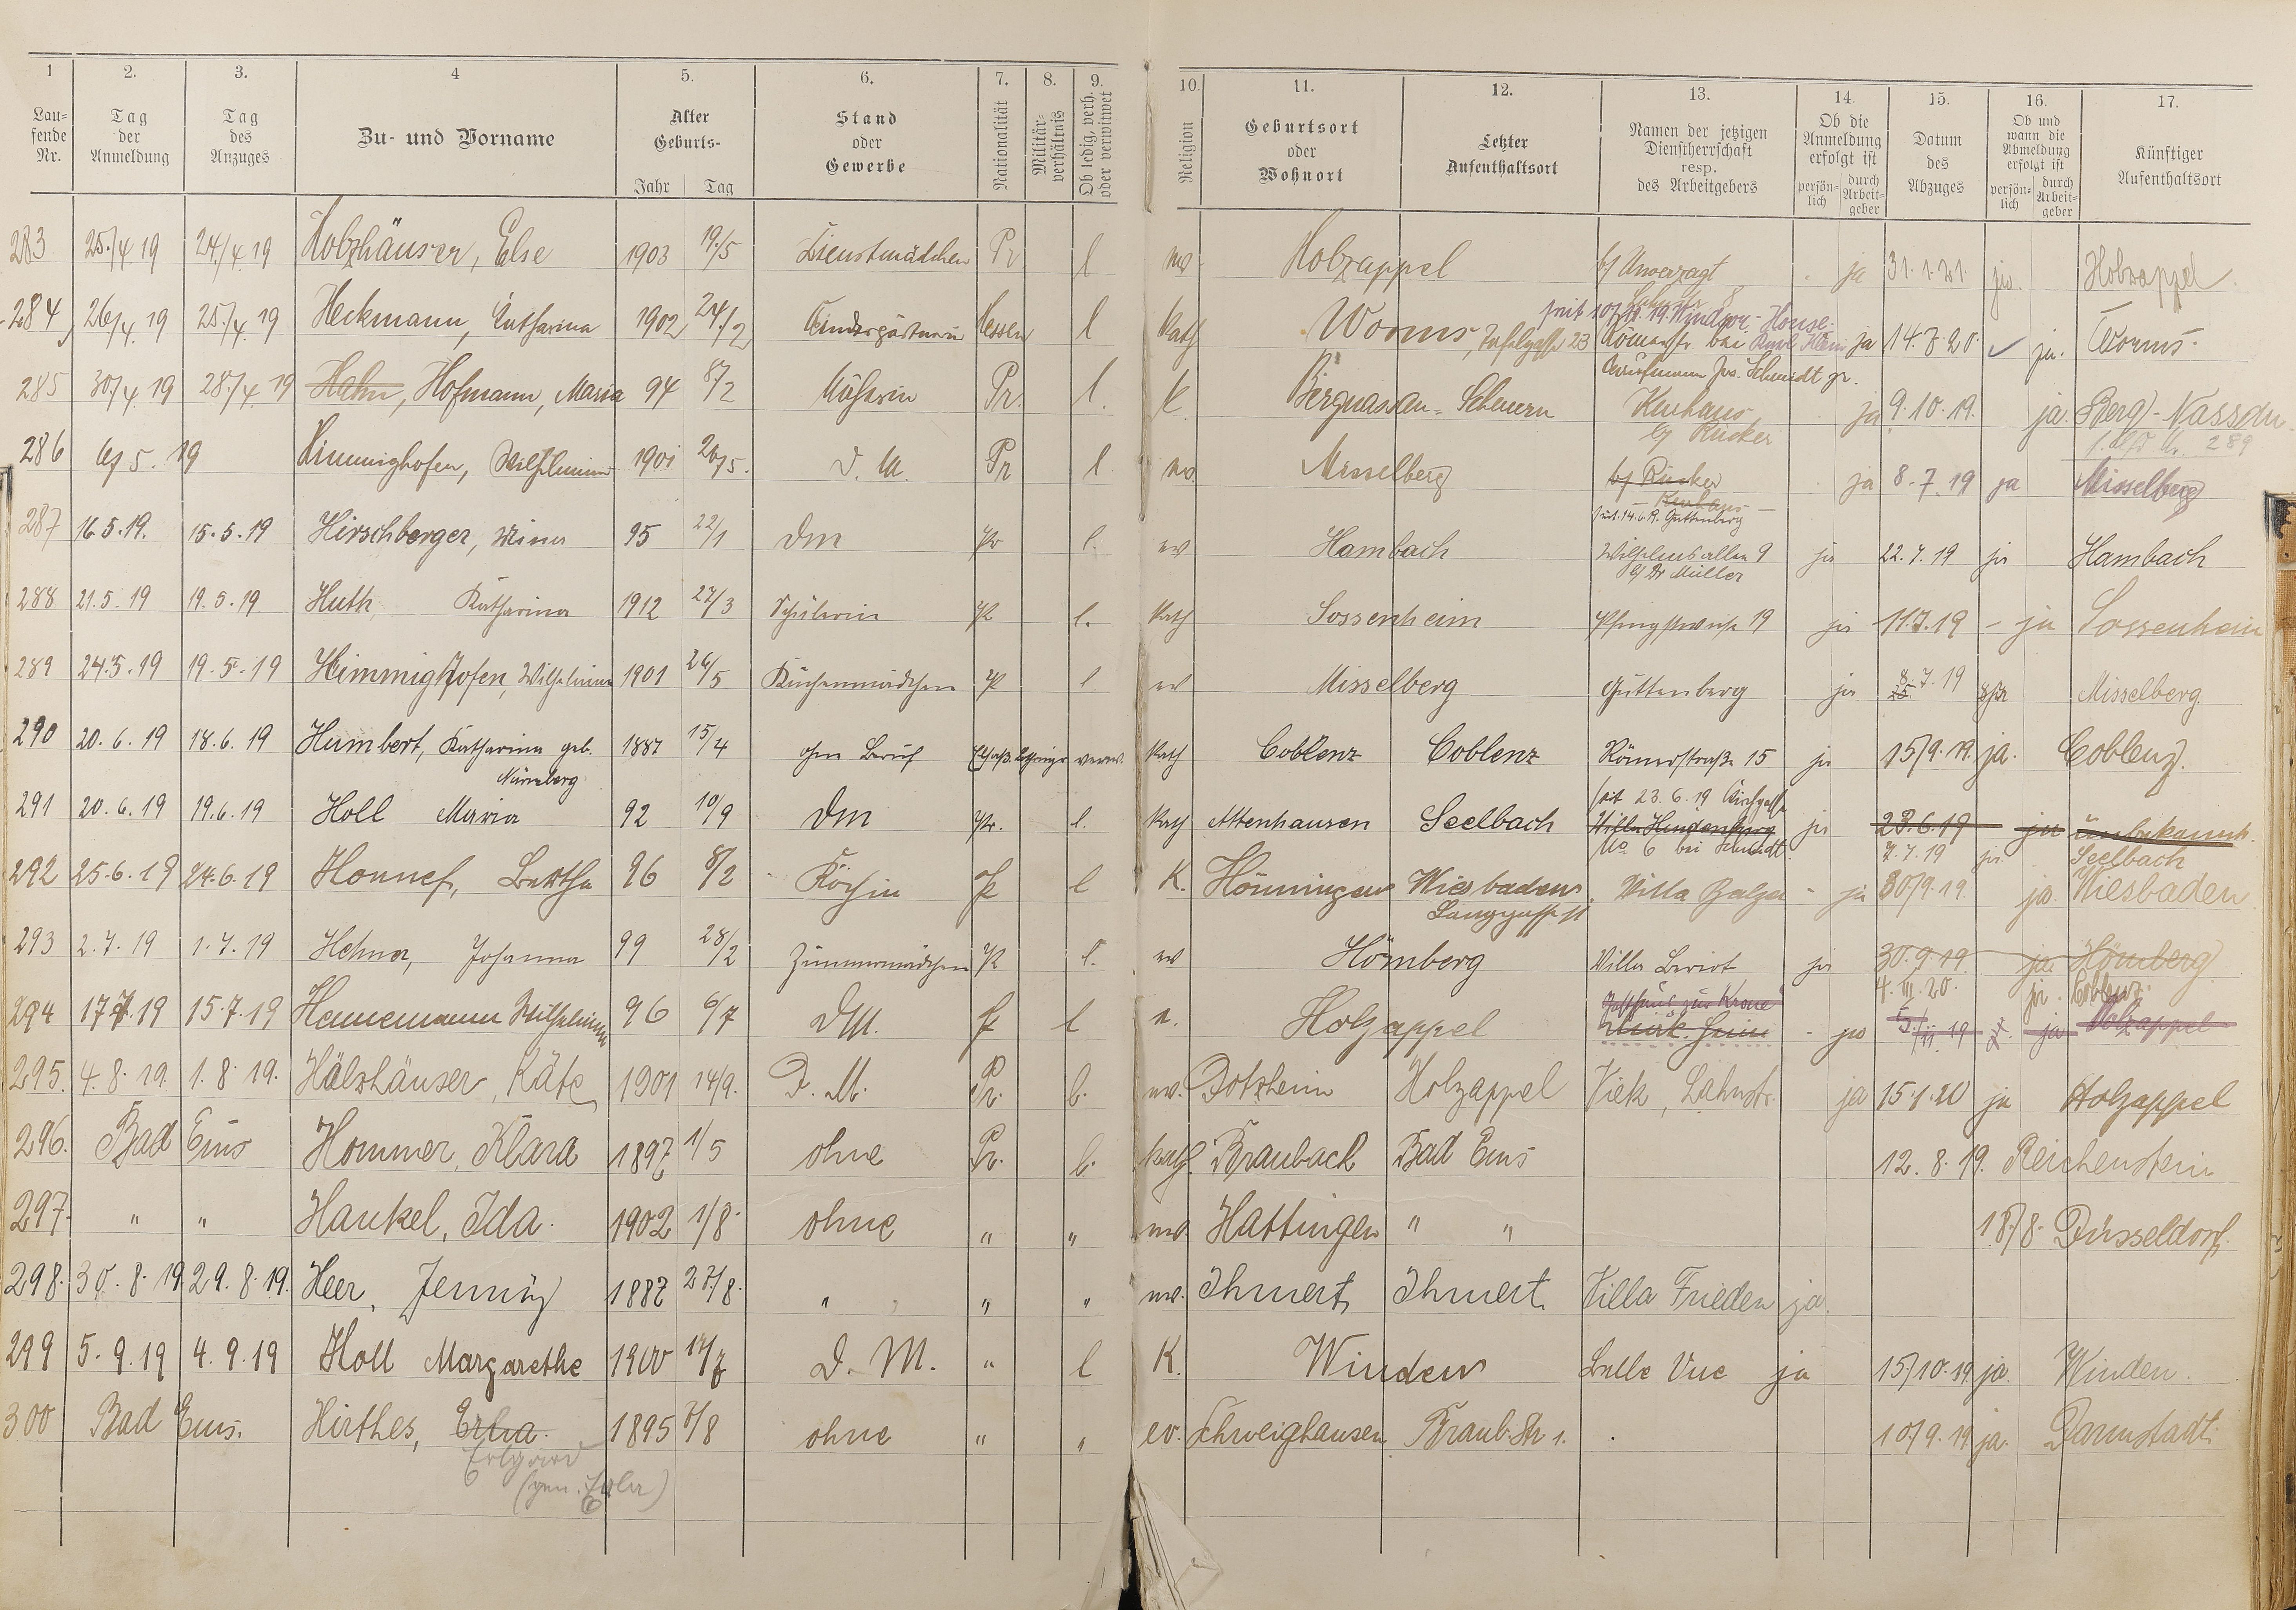 1 2. 3. 4 5. 6. 7. 8. 9. 10. 11. 12. 13. 14. 15. 16. 17.
Laufende Nr. Tag der Anmeldung Tag des Anzuges Zu- und Vorname Alter Geburts- Jahr Tag Stand oder Gewerbe Nationalität Militärverhältnis Ob ledig, verh. oder verwitwet Religion Geburtsort oder Wohnort Letzter Aufenthaltsort Namen der jetzigen Dienstherrschaft resp. des Arbeitgebers Ob die Anmeldung erfolgt ist persönlich durch Arbeitgeber Datum des Abzuges Ob und wann die Abmeldung erfolgt ist persönlich durch Arbeitgeber Künftiger Aufenthaltsort
283 25./4 19 24./4 19 Holzhäuser, Else 1903 19./5 Dienstmädchen Pr l ev Holzappel b/ Unverzagt ja 31.1.21. ja. Holzappel
Windsor-House
284 26/4 19 25./4 19 Heckmann, Catharina 1902 24./2 Kindergärtnerin Hessen l kath Worms, 23 Römerstr bei Karl ja 14.7.20. ja. Worms
Kaufmann Jos. Schmidt jr.
285 30/4 19 28./4 19 Hahn, Hofmann, Maria 94 8/2 Köchin Pr. l. k Bergnassau-Scheuern Kurhaus b/ Rücker ja 9.10.19. ja. Berg-Nassau
289
286 6/5. 19 Himmighofen, Wilhelmine 1901 26/5. D. M. Pr l ev. Misselberg b/ Rücker Kurhaus ja 8.7.19 ja Misselberg
seit 14.6.19. Guttenberg
287 16.5.19. 15.5.19 Hirschberger, Mina 95 22/1 DM Pr l. ev Hambach Wilhelmsallee 9 b/ Dr Müller ja 22.7.19 ja Hambach
288 21.5.19 19.5.19 Huth, Katharina 1912 27/3 Schülerin Pr l. kath Sossenheim Pfingstwiese 19 ja 11.7.19 - ja Sossenheim
289 24.5.19 19.5.19 Himmighofen, Wilhelmine 1901 26/5 Küchenmädchen Pr l ev Misselberg Guttenberg ja 8.7.19 Misselberg
290 20.6.19 18.6.19 Humbert, Katharina geb. Nürnberg 1887 15/4 ohne Beruf verw. kath Coblenz Coblenz Römerstraße 15 ja 15/9.19. ja. Coblenz.
seit 23.6.19 Kirchgasse
291 20.6.19 19.6.19 Holl Maria 92 10/9 DM Pr. l. kath Attenhausen Seelbach Villa Hindenburg ja 23.6.19 ja unbekannt.
No 6 bei Schmidt 7.7.19 ja. Seelbach
292 25.6.19 24.6.19 Honnef, Bertha 96 8/2 Köchin P l K. Hönningen Wiesbaden Langgasse Villa Balzer - ja 30/9.19. ja. Wiesbaden
293 2.7.19 1.7.19 Hehner, Johanna 99 28/2 Zimmermädchen Pr l. ev Hömberg Villa Beriot ja 30.9.19. ja Hömberg
Gasthaus zur Krone 4. III. 20. ja. Coblenz.
294 17.7.19 15.7.19 Hennemann Wilhelmine 96 6/7 DM. P l e. Holzappel - ja 5./11.19 ja Holzappel
295. 4.8.19. 1.8.19. Hölzhäuser, Käte 1901 14/9. D. M. Pr. l. ev. Dotzheim Holzappel Viek, Lahnstr. ja 15.1.20 ja Holzappel
296. Bad Ems Hommer, Klara 1897 1/5 ohne Pr. l. kath. Braubach Bad Ems 12.8.19. Reichenstein
297. " " Hankel, Ida. 1902 1/8. ohne " " ev. Hattingen " " 18./8. Düsseldorf.
298. 30.8.19 29.8.19. Heer, Jenny 1887 27/8. " " " ev. Ihmert Ihmert Villa Frieden ja.
299 5.9.19 4.9.19 Holl Margarethe 1900 17/7 D. M. " l K. Winden Belle Vue ja 15/10.19. ja. Winden.
300 Bad Ems. Hirthes, Erha. 1895 7/8 ohne " " ev. Schweighausen Braub. Str 1. 10/9.19 ja. Darmstadt.